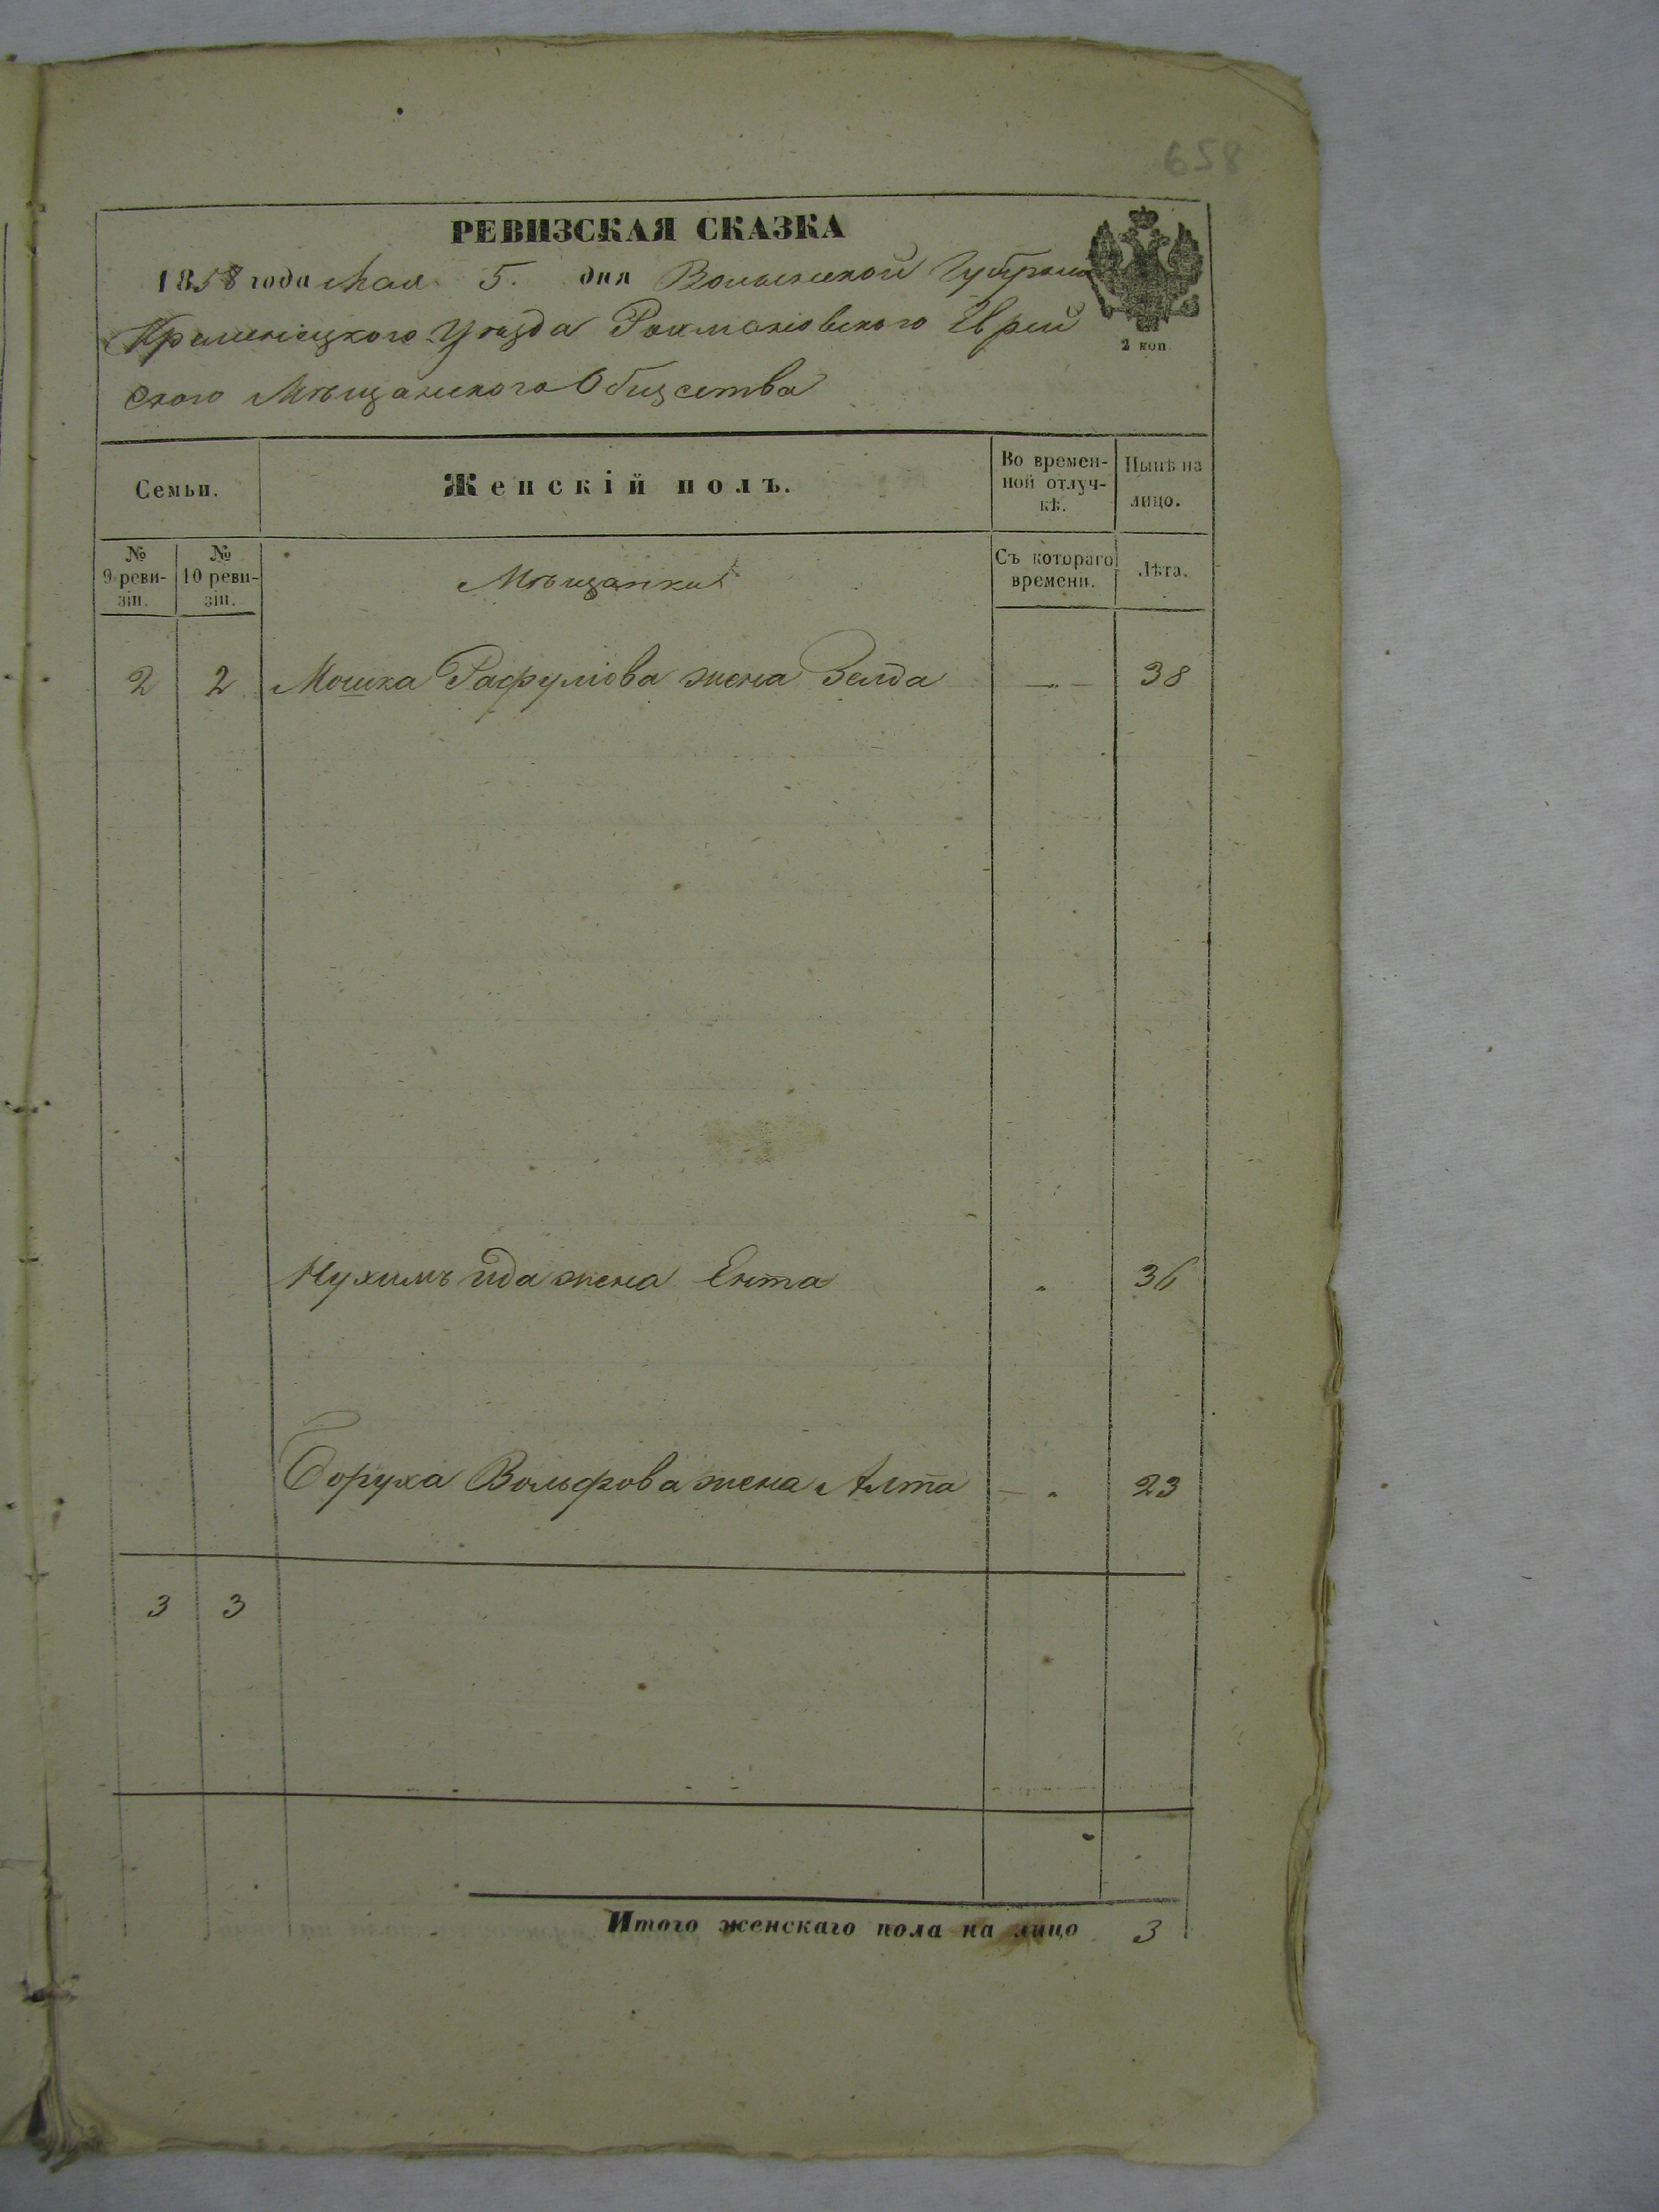 658
РЕВИЗСКАЯ СКАЗКА
1858 года Мая 5. дня Волынской Губерніи
Кременецкого Уѣзда Рахмановского Еврей
ского Мѣщанского Общества
2 коп.
Семьи.
Женскій полъ.
Во времен-
ной отлуч-
кѣ.
Нынѣ на
лицо.
№
9 реви-
зіи.
№
10 реви-
зіи.
Мѣщанки
Съ котораго
времени.
Лѣта.
2 2 Мошка Рафулiова жена Зелда — „ — 38
Нухимъ Ида жена Ента „ 36
Боруха Вольфова жена Алта — „ 23
3 3
Итого женскаго пола на лицо 3